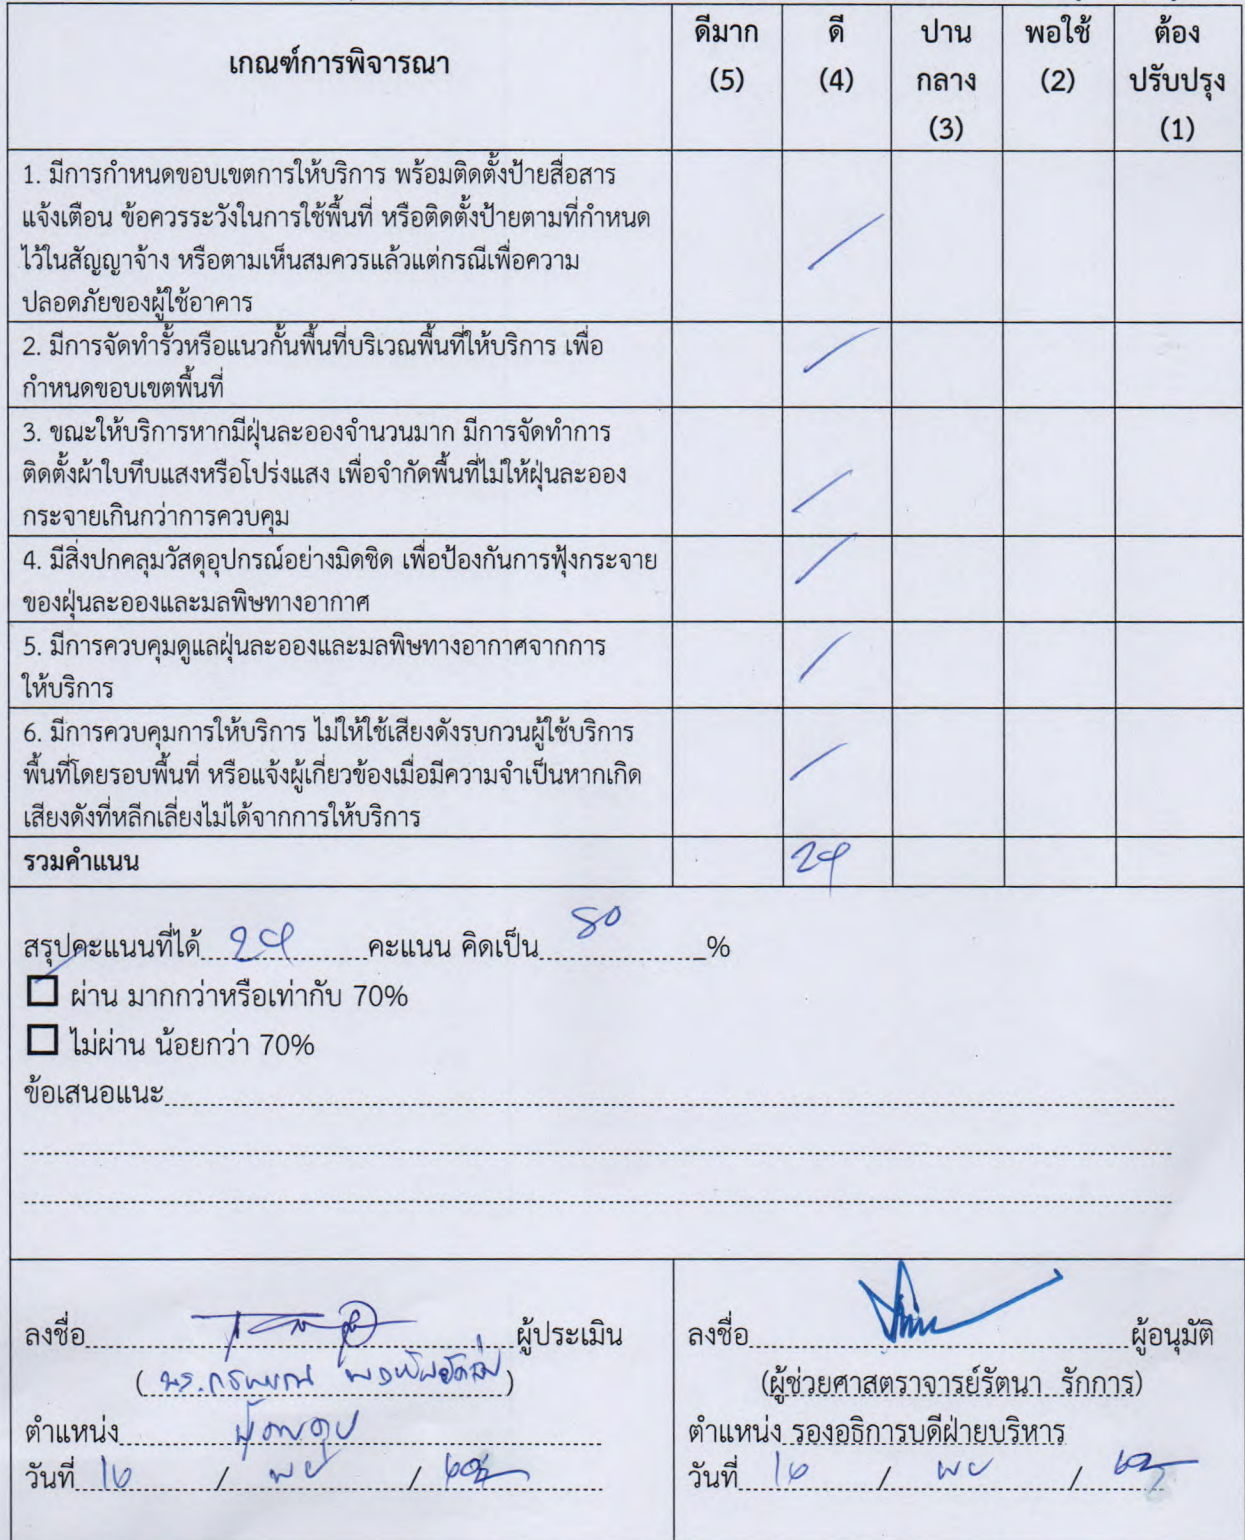 เกณฑ์การพิจารณา
ดีมาก
(5)
ดี
(4)
ปาน
กลาง
(3)
พอใช้
(2)
ต้อง
ปรับปรุง
(1)
1. มีการกำหนดขอบเขตการให้บริการ พร้อมติดตั้งป้ายสื่อสาร
แจ้งเตือน ข้อควรระวังในการใช้พื้นที่ หรือติดตั้งป้ายตามที่กำหนด
ไว้ในสัญญาจ้าง หรือตามเห็นสมควรแล้วแต่กรณีเพื่อความ
ปลอดภัยของผู้ใช้อาคาร
2. มีการจัดทำรั้วหรือแนวกั้นพื้นที่บริเวณพื้นที่ให้บริการ เพื่อ
กำหนดขอบเขตพื้นที่
3. ขณะให้บริการหากมีฝุ่นละอองจำนวนมาก มีการจัดทำการ
ติดตั้งผ้าใบทึบแสงหรือโปร่งแสง เพื่อจำกัดพื้นที่ไม่ให้ฝุ่นละออง
กระจายเกินกว่าการควบคุม
4. มีสิ่งปกคลุมวัสดุอุปกรณ์อย่างมิดชิด เพื่อป้องกันการฟุ้งกระจาย
ของฝุ่นละอองและมลพิษทางอากาศ
5. มีการควบคุมดูแลฝุ่นละอองและมลพิษทางอากาศจากการ
ให้บริการ
6. มีการควบคุมการให้บริการ ไม่ให้ใช้เสียงดังรบกวนผู้ใช้บริการ
พื้นที่โดยรอบพื้นที่ หรือแจ้งผู้เกี่ยวข้องเมื่อมีความจำเป็นหากเกิด
เสียงดังที่หลีกเลี่ยงไม่ได้จากการให้บริการ
รวมคำแนน 24
สรุปคะแนนที่ได้ 24 คะแนน คิดเป็น 80 %
ผ่าน มากกว่าหรือเท่ากับ 70%
ไม่ผ่าน น้อยกว่า 70%
ข้อเสนอแนะ
ลงชื่อ ผู้ประเมิน
ตำแหน่ง ผู้ควบคุม
วันที่ 16 / พย /
ลงชื่อ ผู้อนุมัติ
(ผู้ช่วยศาสตราจารย์รัตนา รักการ)
ตำแหน่ง รองอธิการบดีฝ่ายบริหาร
วันที่ 16 / พย /